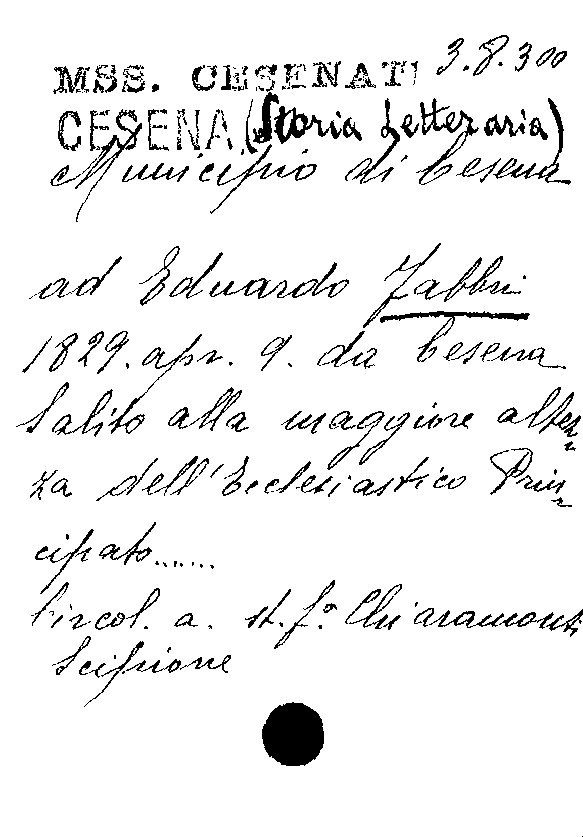 MSS. CESENATI 3.8.300
CESENA (Storia Letteraria)
Municipio di Cesena
ad Eduardo Fabbri
1829. apr. 9. da Cesena
Salito alla maggiore altez-
za dell'Ecclesiastico Prin-
cipato......
Circol. a. st. fo. Chiaramonti
Scipione